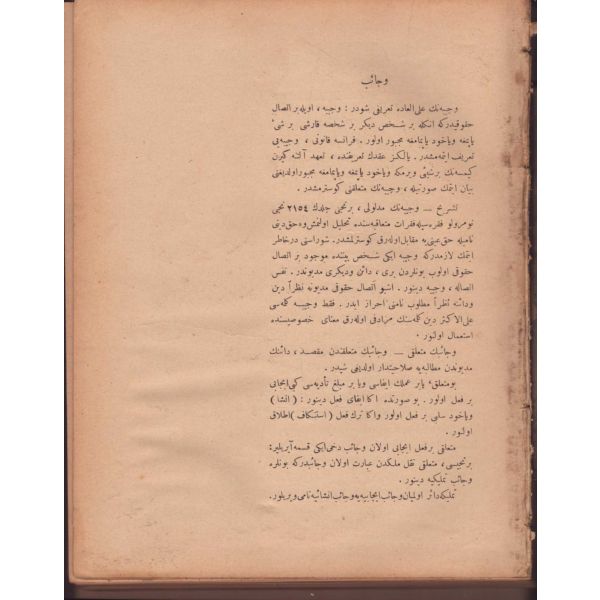 وجائب
وجیبه‌نك على العاده تعریفی شودر : وجیبه ، اویله بر اتصال
حقوقیدركه انكله بر شخص دیكر بر شخصه قارشی بر شیئ
یاپمغه ویاخود یاپمامغه مجبور اولور . فرانسه قانونی ، وجیبه‌یی
تعریف ایتمه‌مشدر . یالكز عقدك تعریفنده ، تعهد آلتنه كیرن
كیمسه‌نك بر شیئی ویرمكه ویاخود یاپمغه ویاخود یاپمامغه مجبور اولدیغنی
بیان ایتمك صورتیله ، وجیبه‌نك متعلقنی كوسترمشدر .
تشریح — وجیبه‌نك مدلولی ، برنجی جلدك ٢١٥٤ نجی
نومرولو فقره‌سیله فقرات متعاقبه‌سنده تحلیل اولنمش وحق دینی
نامیله حق عینی‌یه مقابل اوله‌رق كوسترلمشدر . شوراسنی درخاطر
ایتمك لازمدركه وجیبه ایكی شخص بیننده موجود بر اتصال
حقوقی اولوب بونلردن بری ، دائن ودیكری مدیوندر . نفس
اتصاله ، وجیبه دینور . اشبو اتصال حقوقی مدیونه نظراً دین
ودائنه نظراً مطلوب نامنی احراز ایدر . فقط وجیبه كلمه‌سی
على الاكثر دین كلمه‌سنك مرادفی اوله‌رق معنای خصوصیسنده
استعمال اولنور .
وجائبك متعلقی — وجائبك متعلقندن مقصد ، دائنك
مدیوندن مطالبه‌یه صلاحیتدار اولدیغی شیدر .
بو متعلق یا بر عملك ایفاسی ویا بر مبلغ تأدیه‌سی كبی ایجابی
بر فعل اولور . بو صورتده اكا ایفای فعل دینور : ( انشا )
ویاخود سلبی بر فعل اولور واكا ترك فعل ( استنكاف ) اطلاق
اولنور .
متعلقی بر فعل ایجابی اولان وجائب دخی ایكی قسمه آیریلیر :
برنجیسی ، متعلقی نقل ملكدن عبارت اولان وجائبدركه بونلره
وجائب تملیكیه دینور .
تملیكه دائر اولمیان وجائب ایجابیه‌یه وجائب انشائیه نامی ویریلور .